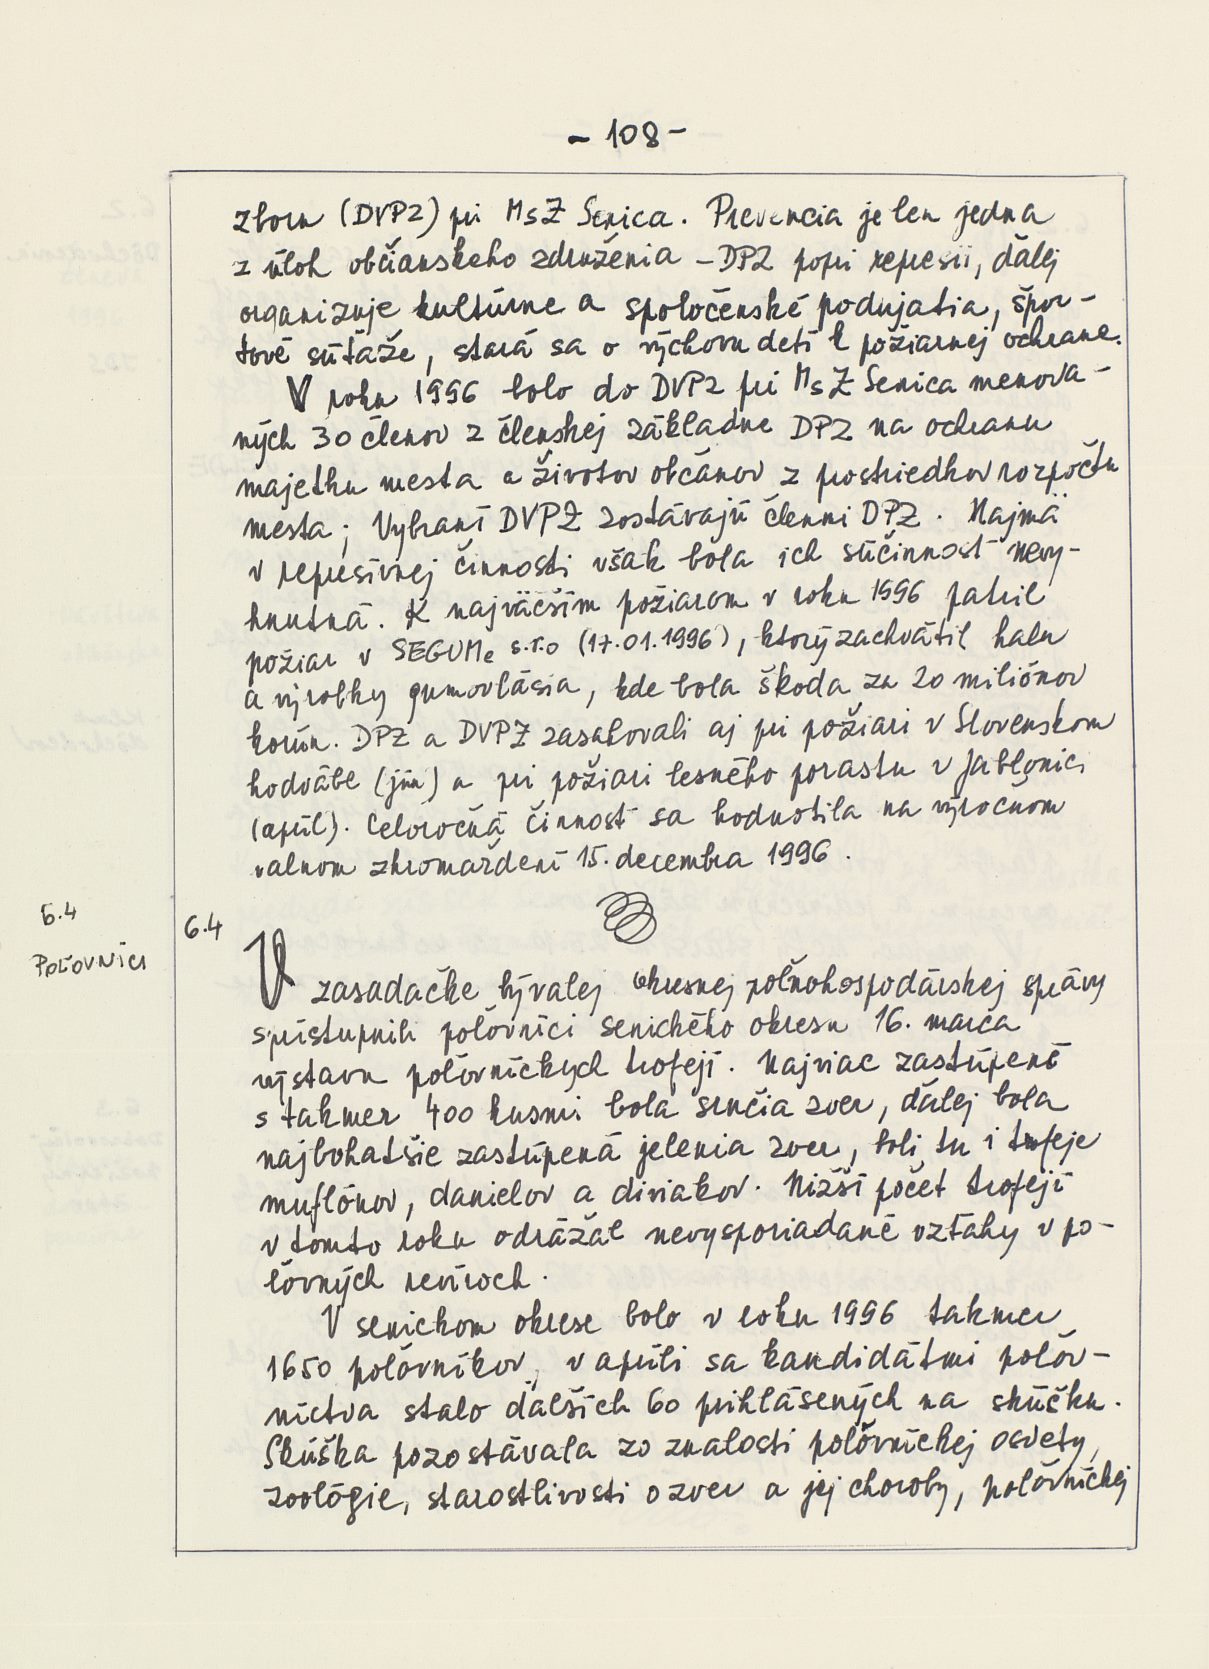 - 108 -
zboru (DVPZ) pri MsZ Senica. Prevencia je len jedna
z úloh občianskeho združenia - DPZ popri represii, ďalej
organizuje kultúrne a spoločenské podujatia, špor-
tové súťaže, stará sa o výchovu detí k požiarnej ochrane.
V roku 1996 bolo do DVPZ pri MsZ Senica menova-
ných 30 členov z členskej základne DPZ na ochranu
majetku mesta a životov občanov z prostriedkov rozpočtu
mesta; Vybraní DVPZ zostávajú členmi DPZ. Najmä
v represívnej činnosti však bola ich súčinnosť nevy-
hnutná. K najväčším požiarom v roku 1996 patril
požiar v SEGUMe s.r.o (17.01.1996), ktorý zachvátil halu
a výrobky gumovlásia, kde bola škoda za 20 miliónov
korún. DPZ a DVPZ zasahovali aj pri požiari v Slovenskom
hodvábe (jún) a pri požiari lesného porastu v Jablonici
(apríl). Celoročná činnosť sa hodnotila na výročnom
valnom zhromaždení 15. decembra 1996.
6.4
Poľovníci
6.4
V zasadačke bývalej okresnej poľnohospodárskej správy
sprístupnili poľovníci senického okresu 16. marca
výstavu poľovníckych trofejí. Najviac zastúpené
s takmer 400 kusmi bola srnčia zver, ďalej bola
najbohatšie zastúpená jelenia zver, boli tu i trofeje
muflónov, danielov a diviakov. Nižší počet trofejí
v tomto roku odrážal nevysporiadané vzťahy v po-
ľovných revíroch.
V senickom okrese bolo v roku 1996 takmer
1650 poľovníkov, v apríli sa kandidátmi poľov-
níctva stalo ďalších 60 prihlásených na skúšku.
Skúška pozostávala zo znalosti poľovníckej osvety,
zoológie, starostlivosti o zver a jej choroby, poľovníckej